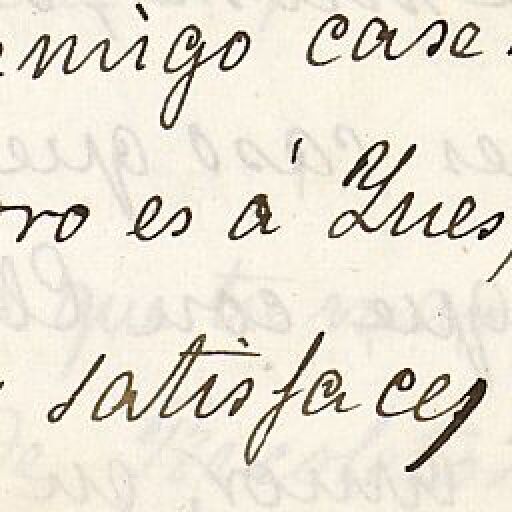 emigo case
oro es á Ynes,
satisface,